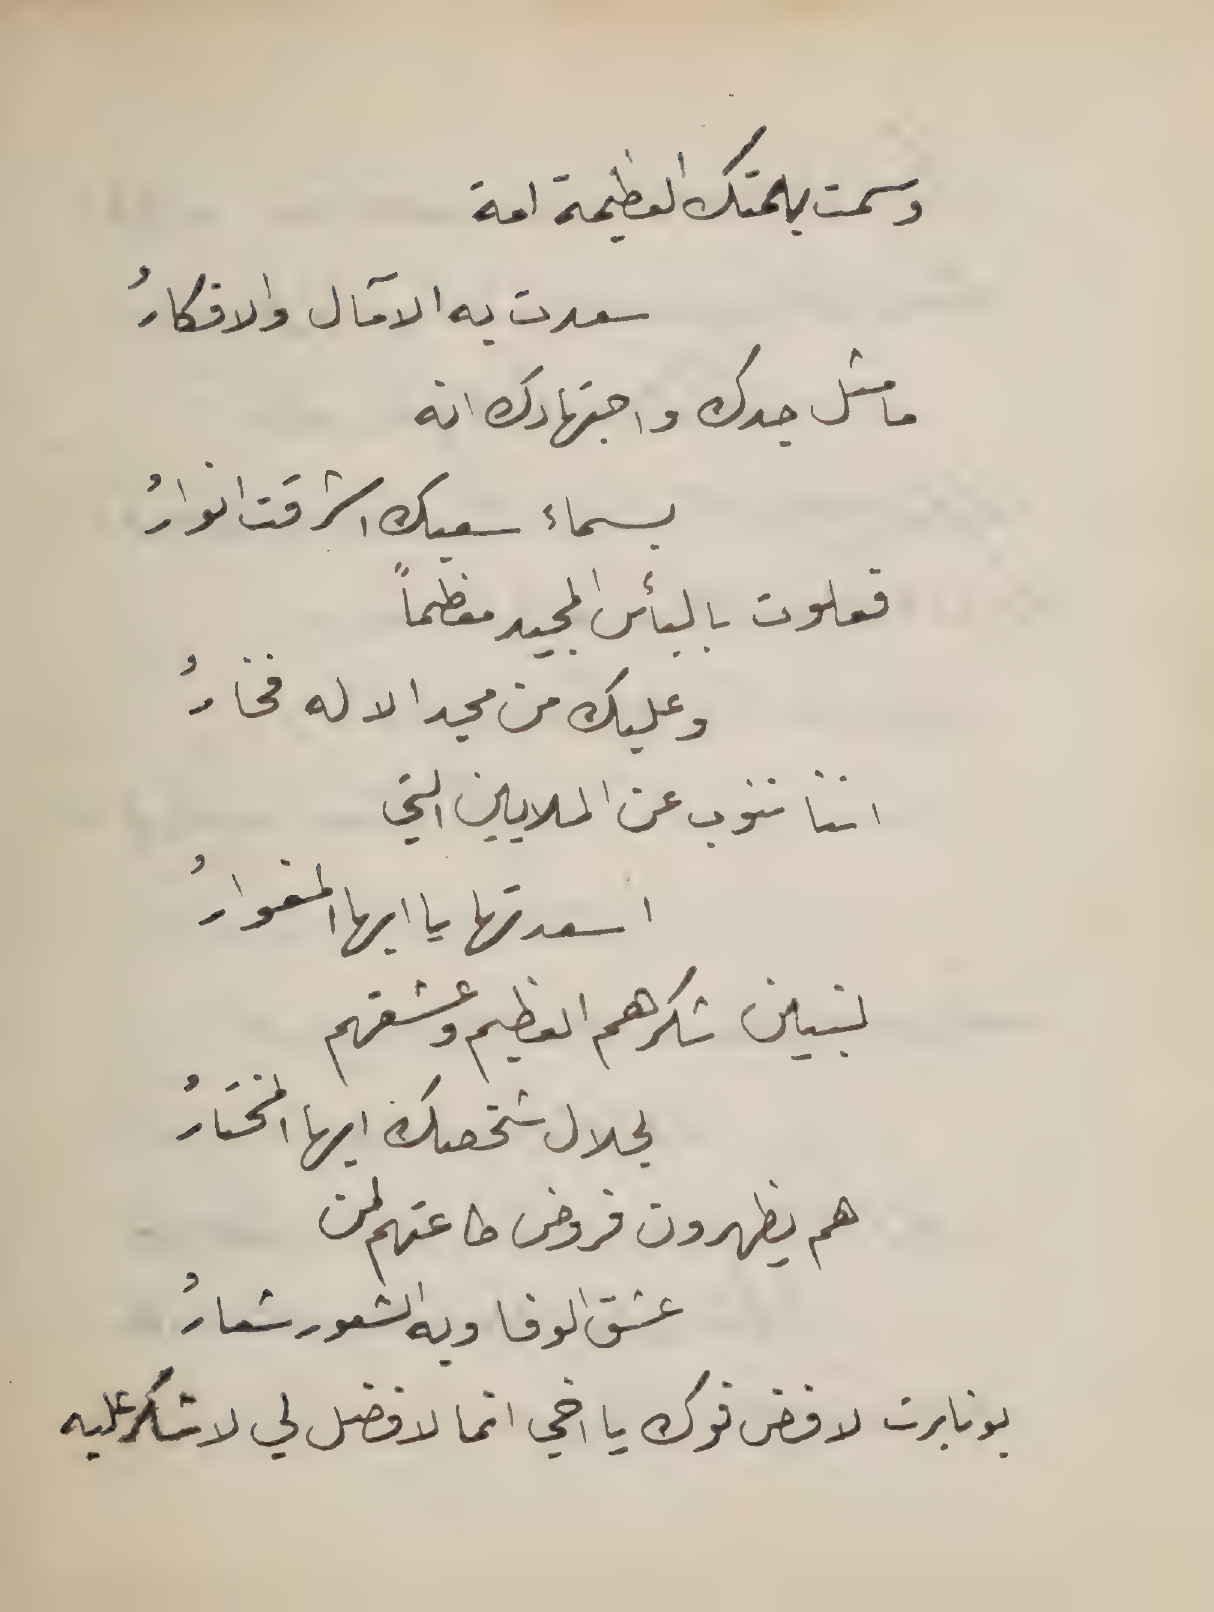 وسمت بهمتك العظيمة امة
سعدت به الآمال والافكارُ
ما مثل جدك واجتهادك انه
بسماء سعيك اشرقت انوارُ
فعلوت بالبأس المجيد معظماً
وعليك من مجد الاله فخارُ
اننا ننوب عن الملايين التي
اسعدتها يا ايها المغوارُ
لنبين شكرهم العظيم وعشقهم
لجلال شخصك ايها المختارُ
هم يظهرون فروض طاعتهم لمن
عشق الوفا وبه الشعور شعارُ
بونابرت لا فض فوك يا اخي انما لا فضل لي لاشكر عليه